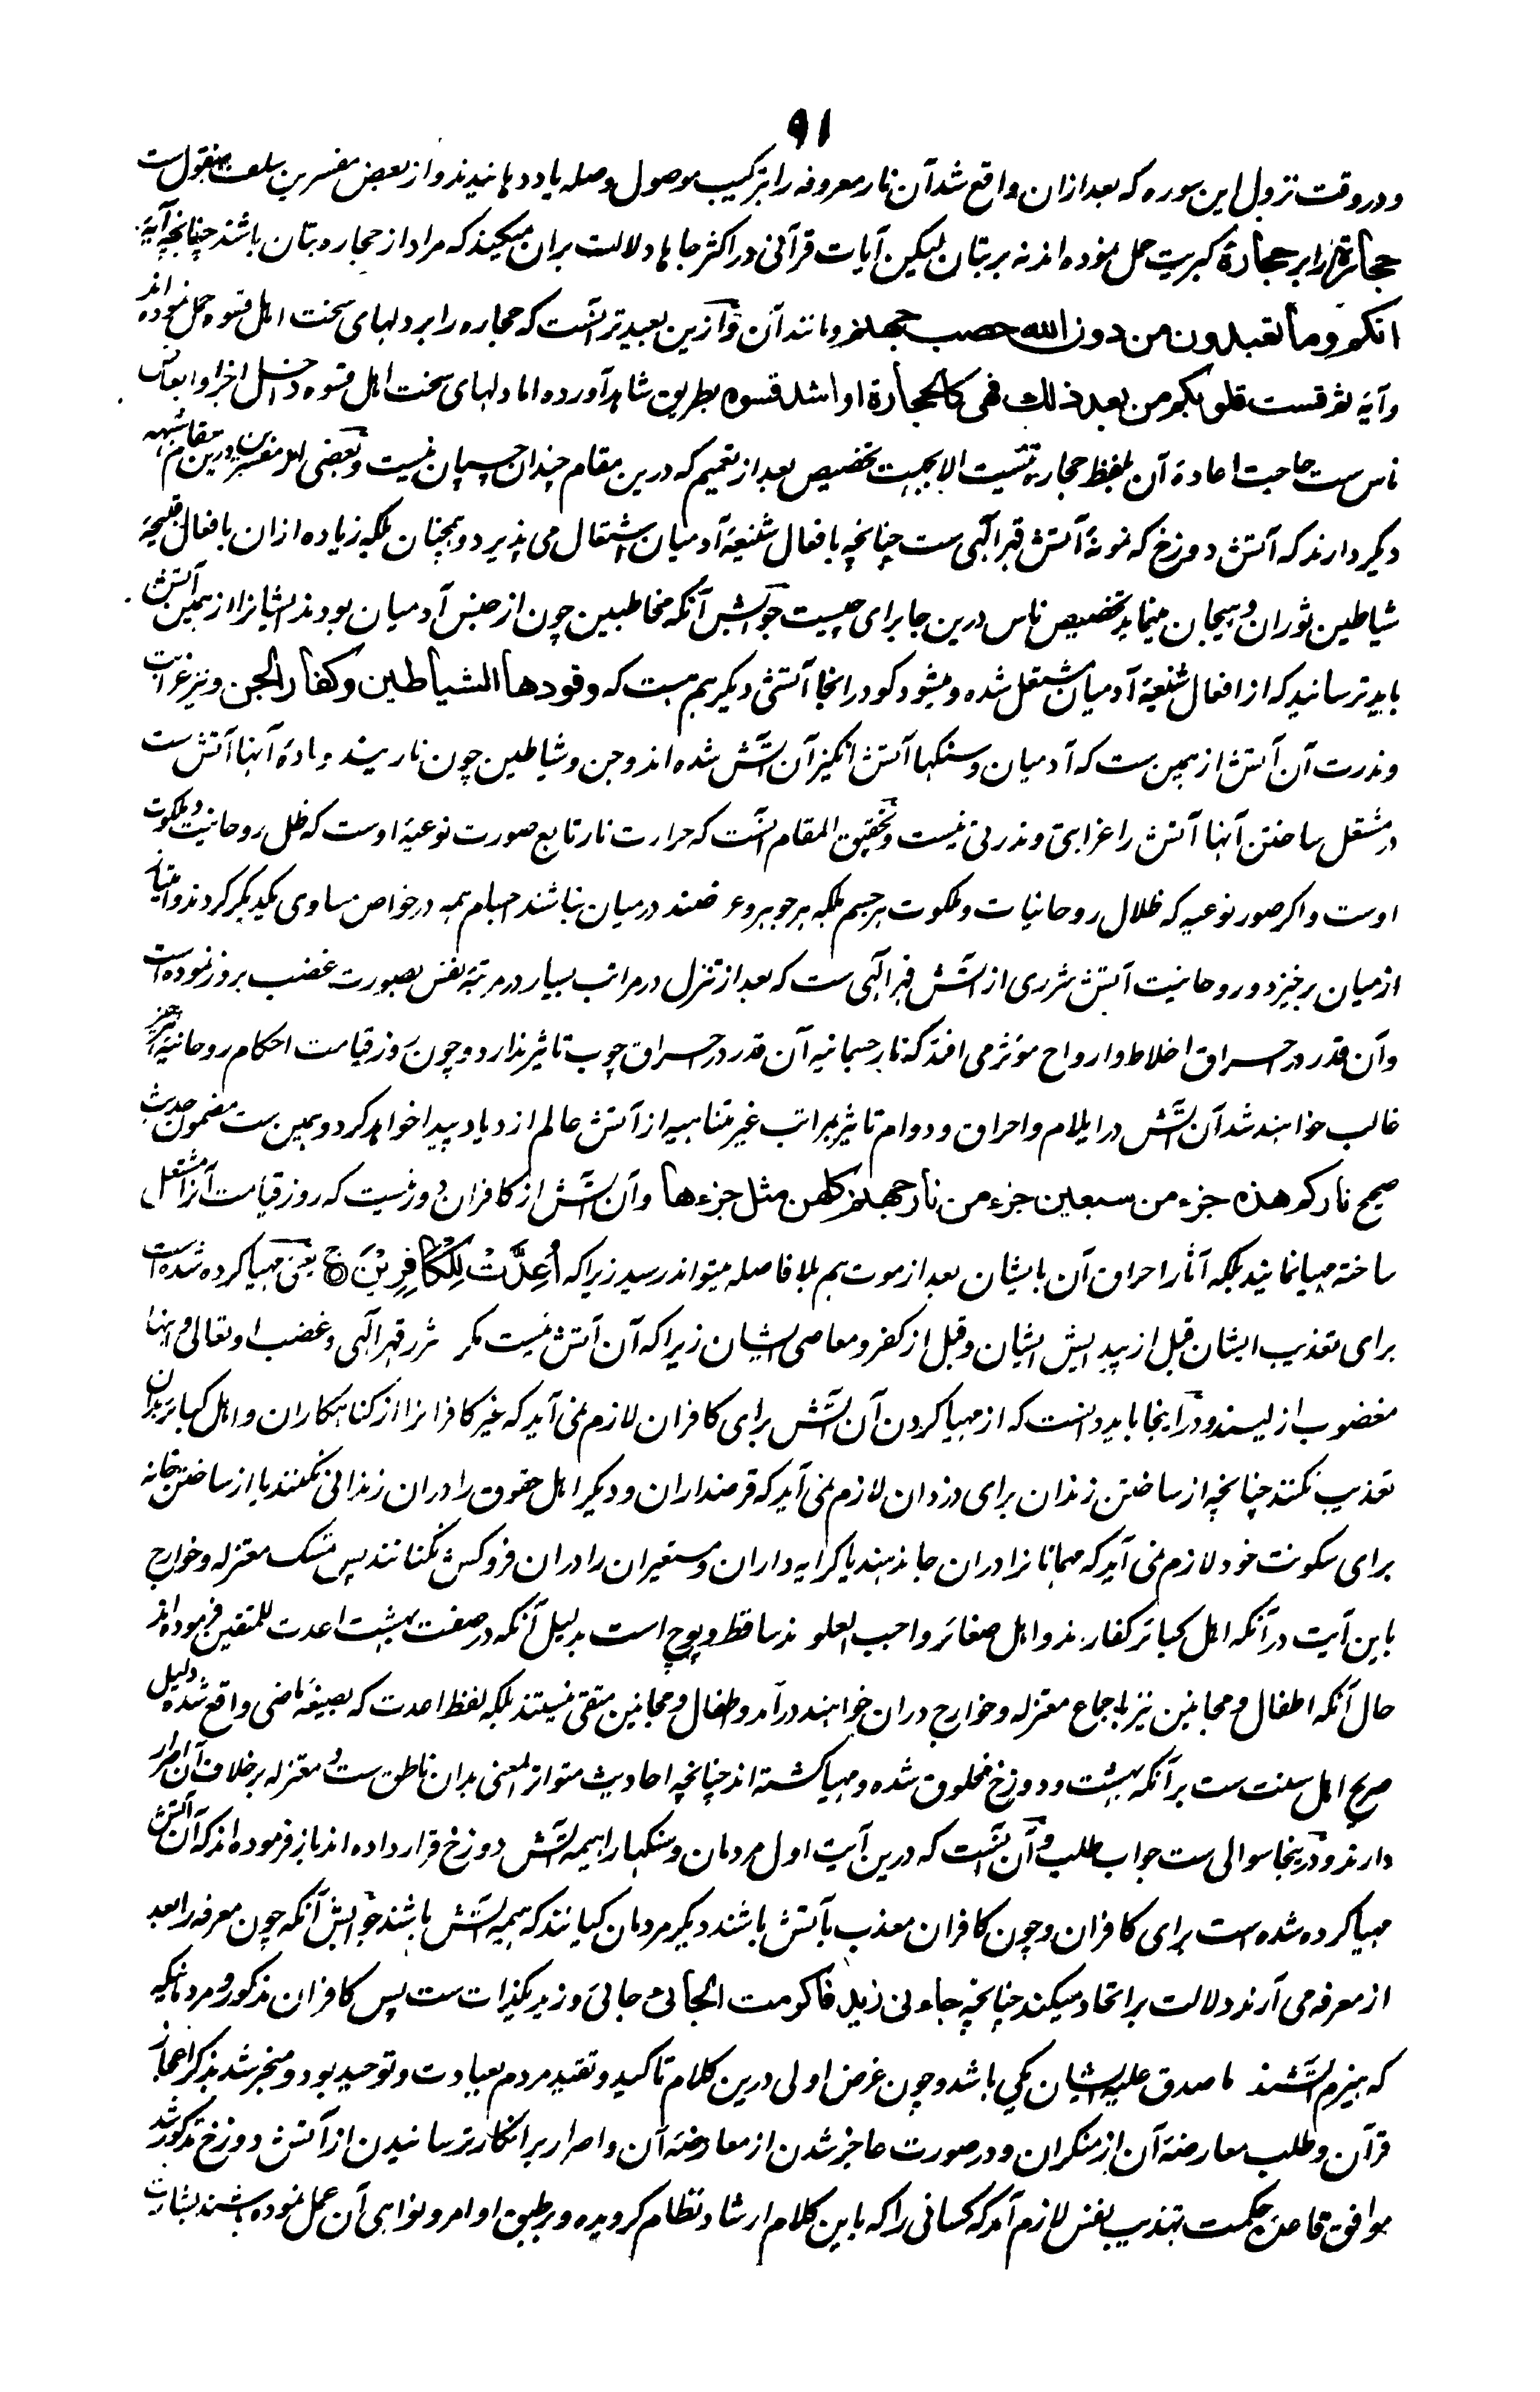 ۹۱
و در وقت نزول این سوره که بعد ازان واقع شد آن نار معروفه را بترکیب موصول وصله یاد دهانیدند و از بعض مفسرین سلف منقول ست
حجارة را بر حجارۀ کبریت حمل نموده اند نه بر بتان لیکن آیات قرآنی در اکثر جاها دلالت بران میکند که مراد از حجاره بتان باشند چنانچه آیۀ
انکم وما تعبدون من دون الله حصب جهنم و مانند آن و ازین بعید تر آنست که حجاره را بر دلهای سخت اهل قسوه حمل نموده اند
و آیه ثم قست قلوبکم من بعد ذلك فهی کالحجارة او اشد قسوة بطریق شاهد آورده اما دلهای سخت اهل قسوه داخل اجزا و ابعاض
ناس ست حاجت اعادۀ آن بلفظ حجاره نیست الا بجهت تخصیص بعد از تعمیم که درین مقام چندان چسپان نیست و بعضی از مفسرین درین مقام شبهه
دیگر دارند که آتش دوزخ که نمونۀ آتش قهر الهی ست چنانچه بافعال شنیعۀ آدمیان اشتعال می پذیرد و همچنان بلکه زیاده ازان بافعال قبیحۀ
شیاطین ثوران و هیجان مینماید تخصیص ناس درین جا برای چیست جوابش آنکه مخاطبین چون از جنس آدمیان بودند ایشانرا از همین آتش
باید ترسانید که از افعال شنیعۀ آدمیان مشتعل شده و میشود گو در انجا آتشی دیگر هم هست که وقودها الشیاطین وکفار الجن و نیز غرابت
و ندرت آن آتش از همین ست که آدمیان و سنگها آتش انگیز آن آتش شده اند و جن و شیاطین چون ناریند و مادۀ آنها آتش ست
در مشتعل ساختن آنها آتش را غرابتی و ندرتی نیست و تحقیق المقام آنست که حرارت نار تابع صورت نوعیۀ اوست که ظل روحانیت و ملکوت
اوست و اگر صور نوعیه که ظلال روحانیات و ملکوت هر جسم بلکه هر جوهر و عرضند درمیان نباشند اجسام همه در خواص مساوی یکدیگر گردند و امتیاز
از میان برخیزد و روحانیت آتش شرری از آتش قهر الهی ست که بعد از تنزل در مراتب بسیار در مرتبۀ نفس بصورت غضب بروز نموده است
و آن قدر در احراق اخلاط و ارواح مؤثر می افتد که نار جسمانیه آن قدر در احراق چوب تاثیر ندارد و چون روز قیامت احکام روحانیۀ هر چیز
غالب خواهند شد آن آتش در ایلام و احراق و دوام تاثیر بمراتب غیر متناهیه از آتش عالم ازدیاد پیدا خواهد کرد و همین ست مضمون حدیث
صحیح نارکم هذه جزء من سبعین جزء من نار جهنم کلهن مثل جزءها و آن آتش از کافران دور نیست که روز قیامت آنرا مشتعل
ساخته مهیا نمایند بلکه آثار احراق آن بایشان بعد از موت هم بلا فاصله میتواند رسید زیرا که أُعِدَّتْ لِلْكَافِرِيْنَ ج یعنی مهیا کرده شده است
برای تعذیب ایشان قبل از پیدایش ایشان و قبل از کفر و معاصی ایشان زیرا که آن آتش نیست مگر شرر قهر الهی و غضب او تعالی و اینها
مغضوب ازلیند و در اینجا باید دانست که از مهیا کردن آن آتش برای کافران لازم نمی آید که غیر کافرانرا از گناهگاران و اهل کبائر بدان
تعذیب نکنند چنانچه از ساختن زندان برای دزدان لازم نمی آید که قرضداران و دیگر اهل حقوق را دران زندانی نکنند یا از ساختن خانه
برای سکونت خود لازم نمی آید که مهمانانرا دران جا ندهند یا کرایه داران و مستعیران را دران فروکش نکنانند پس تمسک معتزله و خوارج
باین آیت در آنکه اهل کبائر کفارند و اهل صغائر واجب العفوند ساقط و پوچ است بدلیل آنکه در صفت بهشت اعدت للمتقین فرموده اند
حال آنکه اطفال و مجانین نیز باجماع معتزله و خوارج دران خواهند درآمد و اطفال و مجانین متقی نیستند بلکه لفظ اعدت که بصیغۀ ماضی واقع شده دلیل
صریح اهل سنت ست بر آنکه بهشت و دوزخ مخلوق شده و مهیا گشته اند چنانچه احادیث متواتر المعنی بدان ناطق ست و معتزله بر خلاف آن اصرار
دارند و درینجا سوالی ست جواب طلب و آن آنست که درین آیت اول مردمان و سنگها را هیمه آتش دوزخ قرار داده اند باز فرموده اند که آن آتش
مهیا کرده شده است برای کافران و چون کافران معذب بآتش باشند دیگر مردمان کیانند که هیمه آتش باشند جوابش آنکه چون معرفه را بعد
از معرفه می آرند دلالت بر اتحاد میکند چنانچه جاءنی زید فاکرمت الجائی و جائی و زید یکذات ست پس کافران مذکور و مردمانیکه
که هیزم آتشند ما صدق علیه ایشان یکی باشد و چون غرض اولی درین کلام تاکید و تقیید مردم بعبادت و توحید بود و منجر شد بذکر اعجاز
قرآن و طلب معارضۀ آن از منکران و در صورت عاجز شدن از معارضۀ آن و اصرار بر انکار ترسانیدن از آتش دوزخ مذکور شد
موافق قاعدۀ حکمت تهذیب نفس لازم آمد که کسانی را که باین کلام ارشاد نظام گرویده و بر طبق اوامر و نواهی آن عمل نموده باشند بشارت